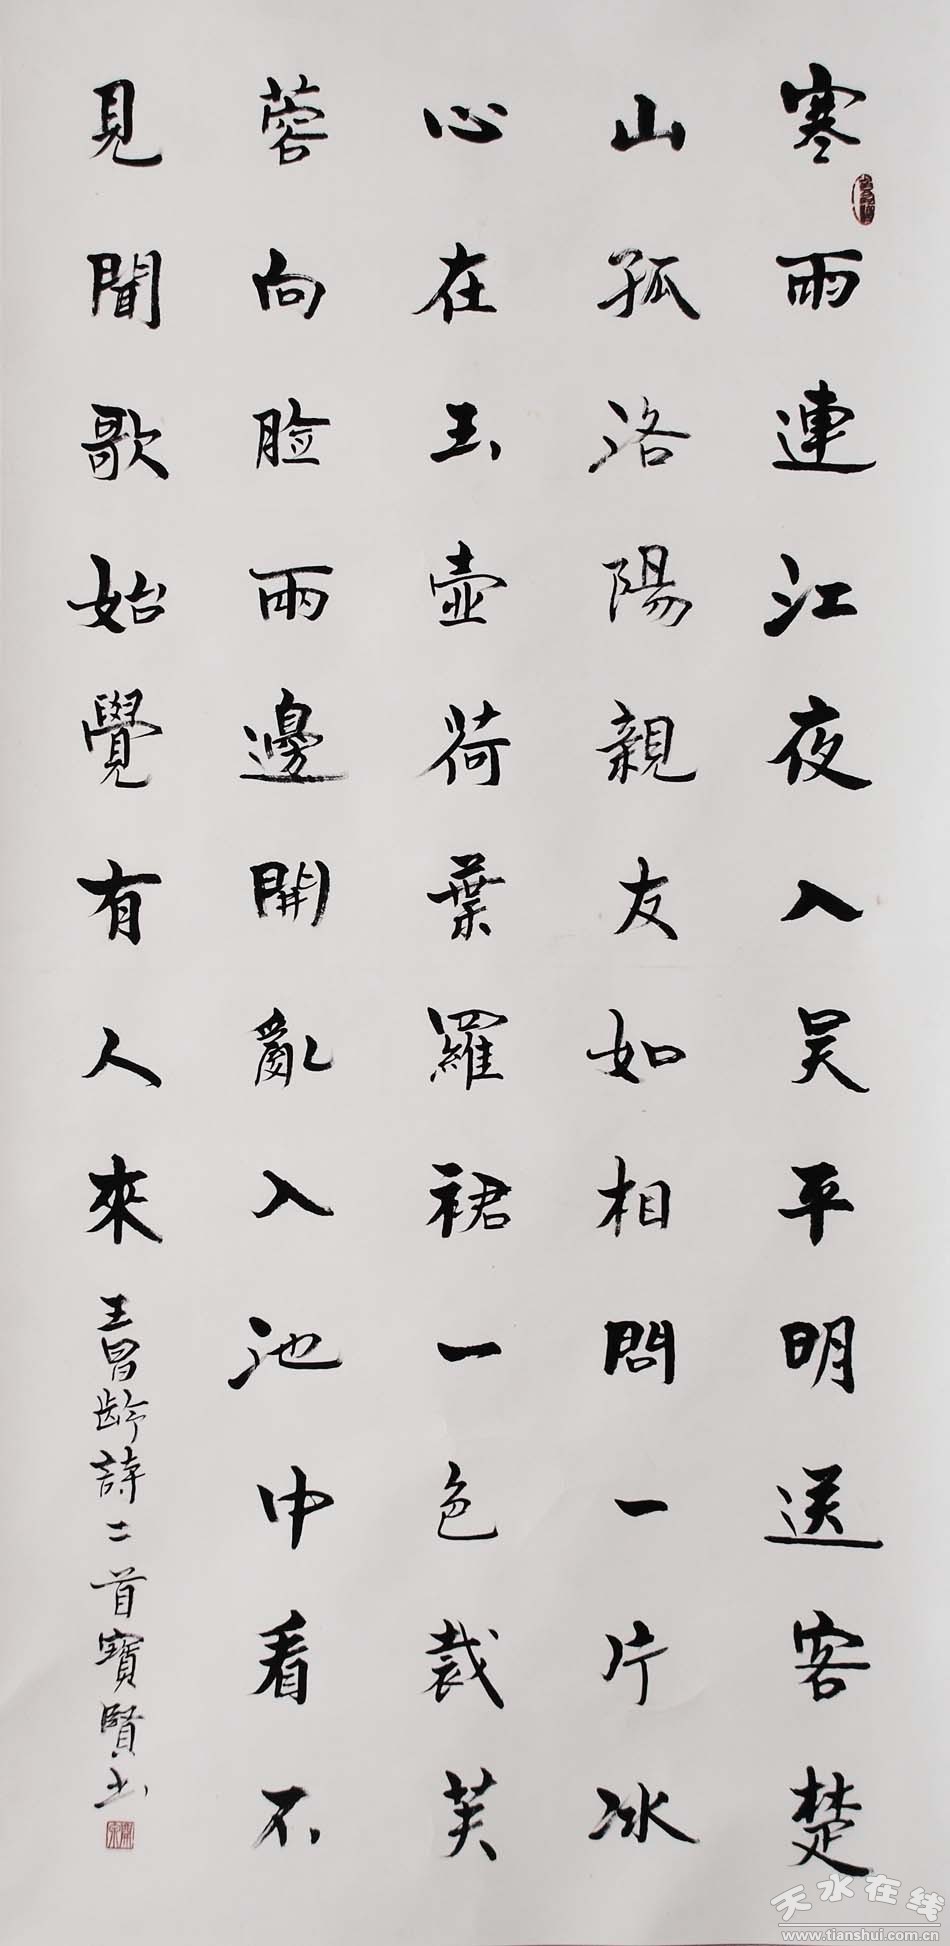 寒雨連江夜入吴平明送客楚
山孤洛陽親友如相問一片冰
心在玉壺荷葉羅裙一色裁芙
蓉向脸兩邊開亂入池中看不
見聞歌始覺有人來
王昌龄詩二首寶賢书
天水在线
www.tianshui.com.cn